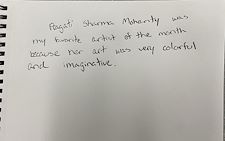 Pagati Sharma Mohanty was
my favorite artist of the month
because her art was very colorful
and imaginative.